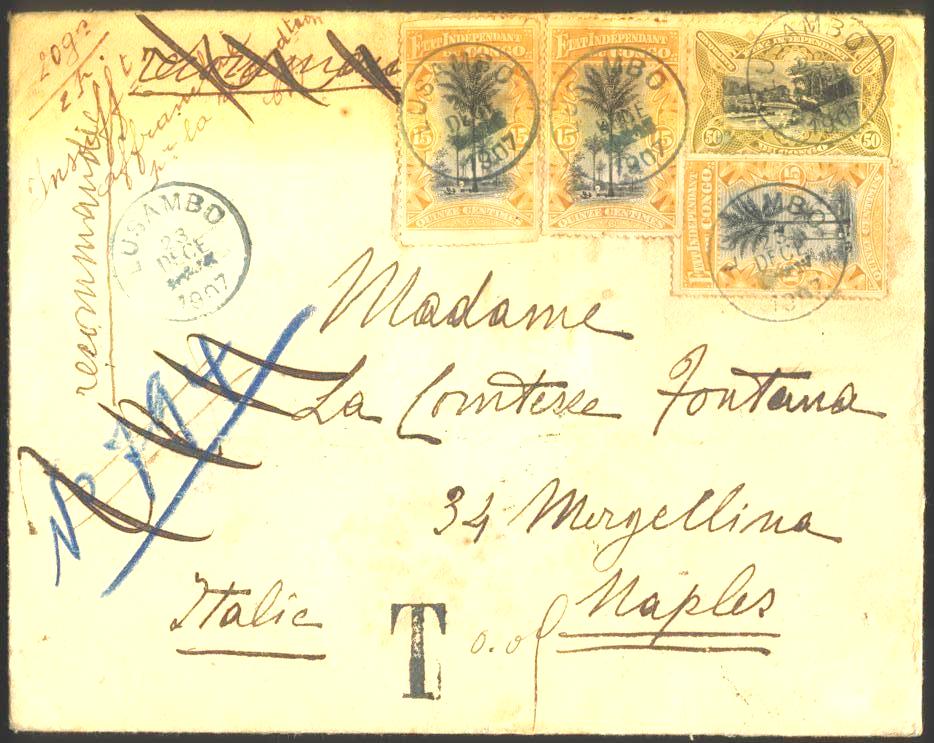 209r
recommandée
recommandée
Insuff
LUSAMBO
23
DECE
1907
ETAT INDEPENDANT
DU CONGO
15 15
QUINZE CENTIMES
LUSAMBO
DECE
1907
ETAT INDEPENDANT
DU CONGO
15 15
QUINZE CENTIMES
LUSAMBO
DECE
1907
ETAT INDEPENDANT
50 50
DU CONGO
LUSAMBO
1907
ETAT INDEPENDANT
DU CONGO
15
QUINZE CENTIMES
LUSAMBO
23
DECE
1907
Madame
La Comtesse Fontana
34 Mergellina
Naples
Italie
T